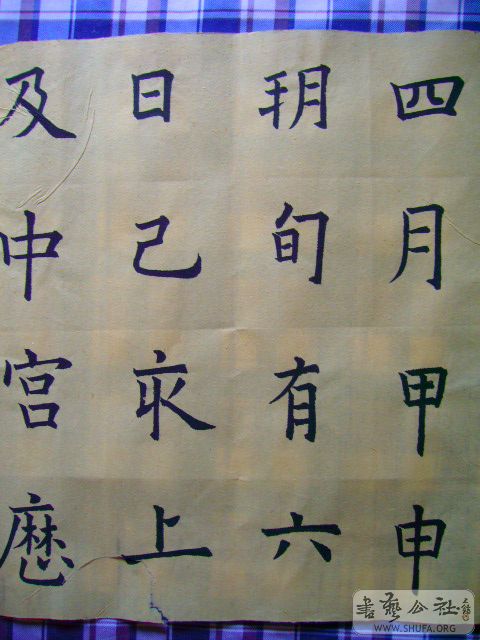 四月甲申
朔旬有六
日己亥上
及中宫歷
書藝公社
WWW.SHUFA.ORG